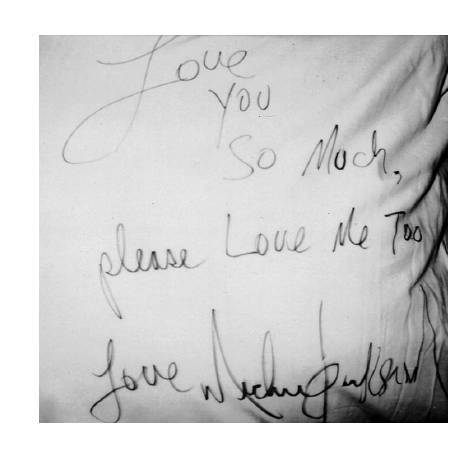 Love
you
So Much,
please Love Me Too
Love Michael Jackson